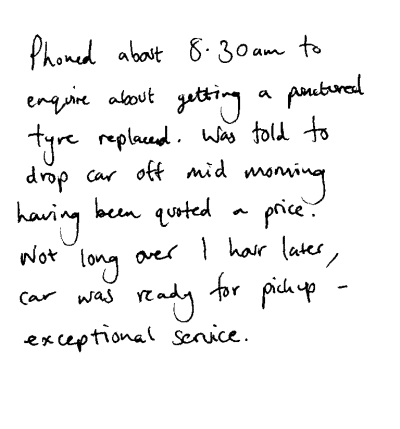 Phoned about 8.30am to
enquire about getting a punctured
tyre replaced. Was told to
drop car off mid morning
having been quoted a price.
Not long over 1 hour later,
car was ready for pickup -
exceptional service.